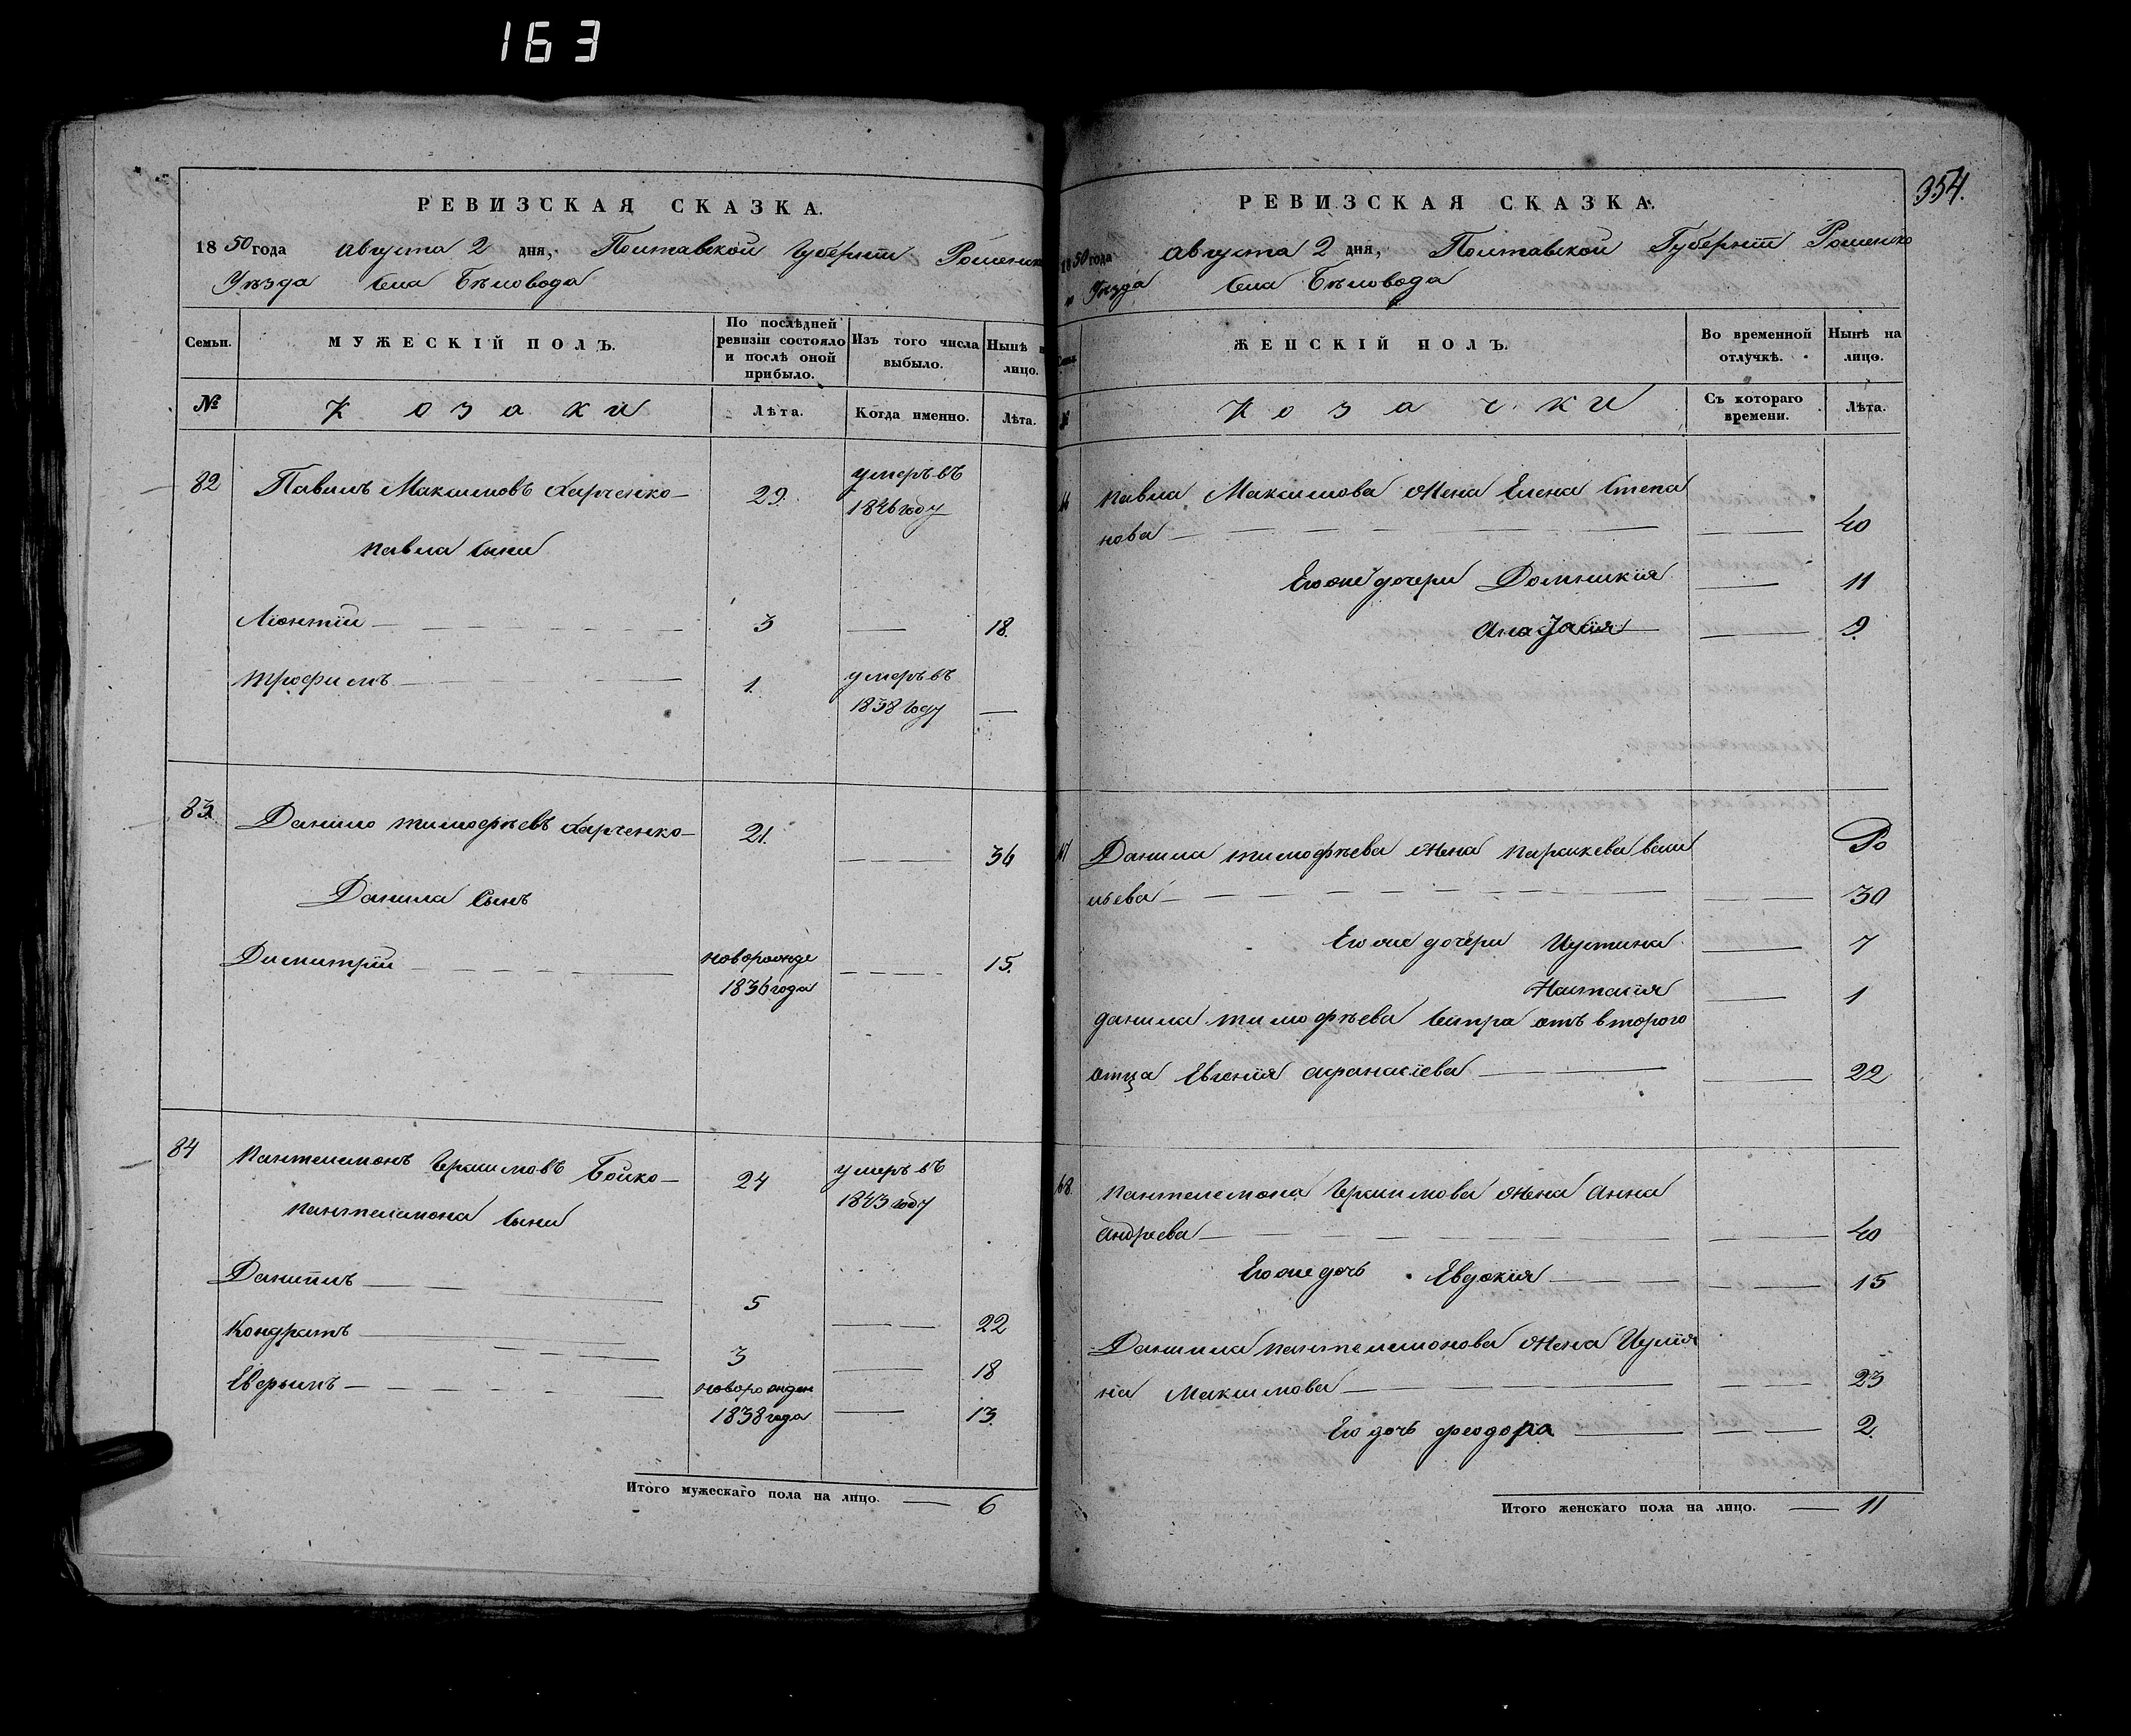 163
РЕВИЗСКАЯ СКАЗКА.
1850 года Августа 2 дня, Полтавской Губерніи Роменско
Уѣзда Села Бѣловода
Семьи.
МУЖЕСКІЙ ПОЛЪ.
По послѣдней ревизіи состояло и послѣ оной прибыло.
Изъ того числа выбыло.
Нынѣ н лицо.
№
Козаки
Лѣта.
Когда именно.
Лѣта.
82 Павелъ Максимовъ Харченко 29. умеръ въ
1846 году
Павла сыны
Ліонтій 3 18.
Трофимъ 1. умеръ въ
1838 году
83. Данило Тимофѣевъ Харченко 21. 36
Данила сынъ
Димитрій новорожде 15.
1836 года
84 Пантелимонъ Герасимовъ Бойко 24 умеръ въ
1843 году
Пантелимона сыны
Даніилъ 5 22
Кондратъ 3 18
новорожден
1838 года 13.
Итого мужескаго пола на лицо. 6
354.
РЕВИЗСКАЯ СКАЗКА.
1850 года Августа 2 дня, Полтавской Губерніи Роменско
го Уѣзда Села Бѣловода
ЖЕНСКІЙ ПОЛЪ.
Во временной отлучкѣ.
Нынѣ на лицо.
№
Козачки
Съ котораго времени.
Лѣта.
Павла Максимова жена Елена Степа
нова 40
Его же дочери Домникія 11
9.
Данила Тимофѣева жена Параскева Васи
льева 30
Его же дочери Иустина 7
Настасія 1
Данила Тимофѣева сестра отъ второго
отца Евгенія Афанасіева 22
68. Пантелемона Герасимова жена Анна
Андреева 40
Его же дочь Евдокія 15
Даніила Пантелемонова жена Иулія
на Максимова 23
Его дочь Феодора 2.
Итого женскаго пола на лицо. 11